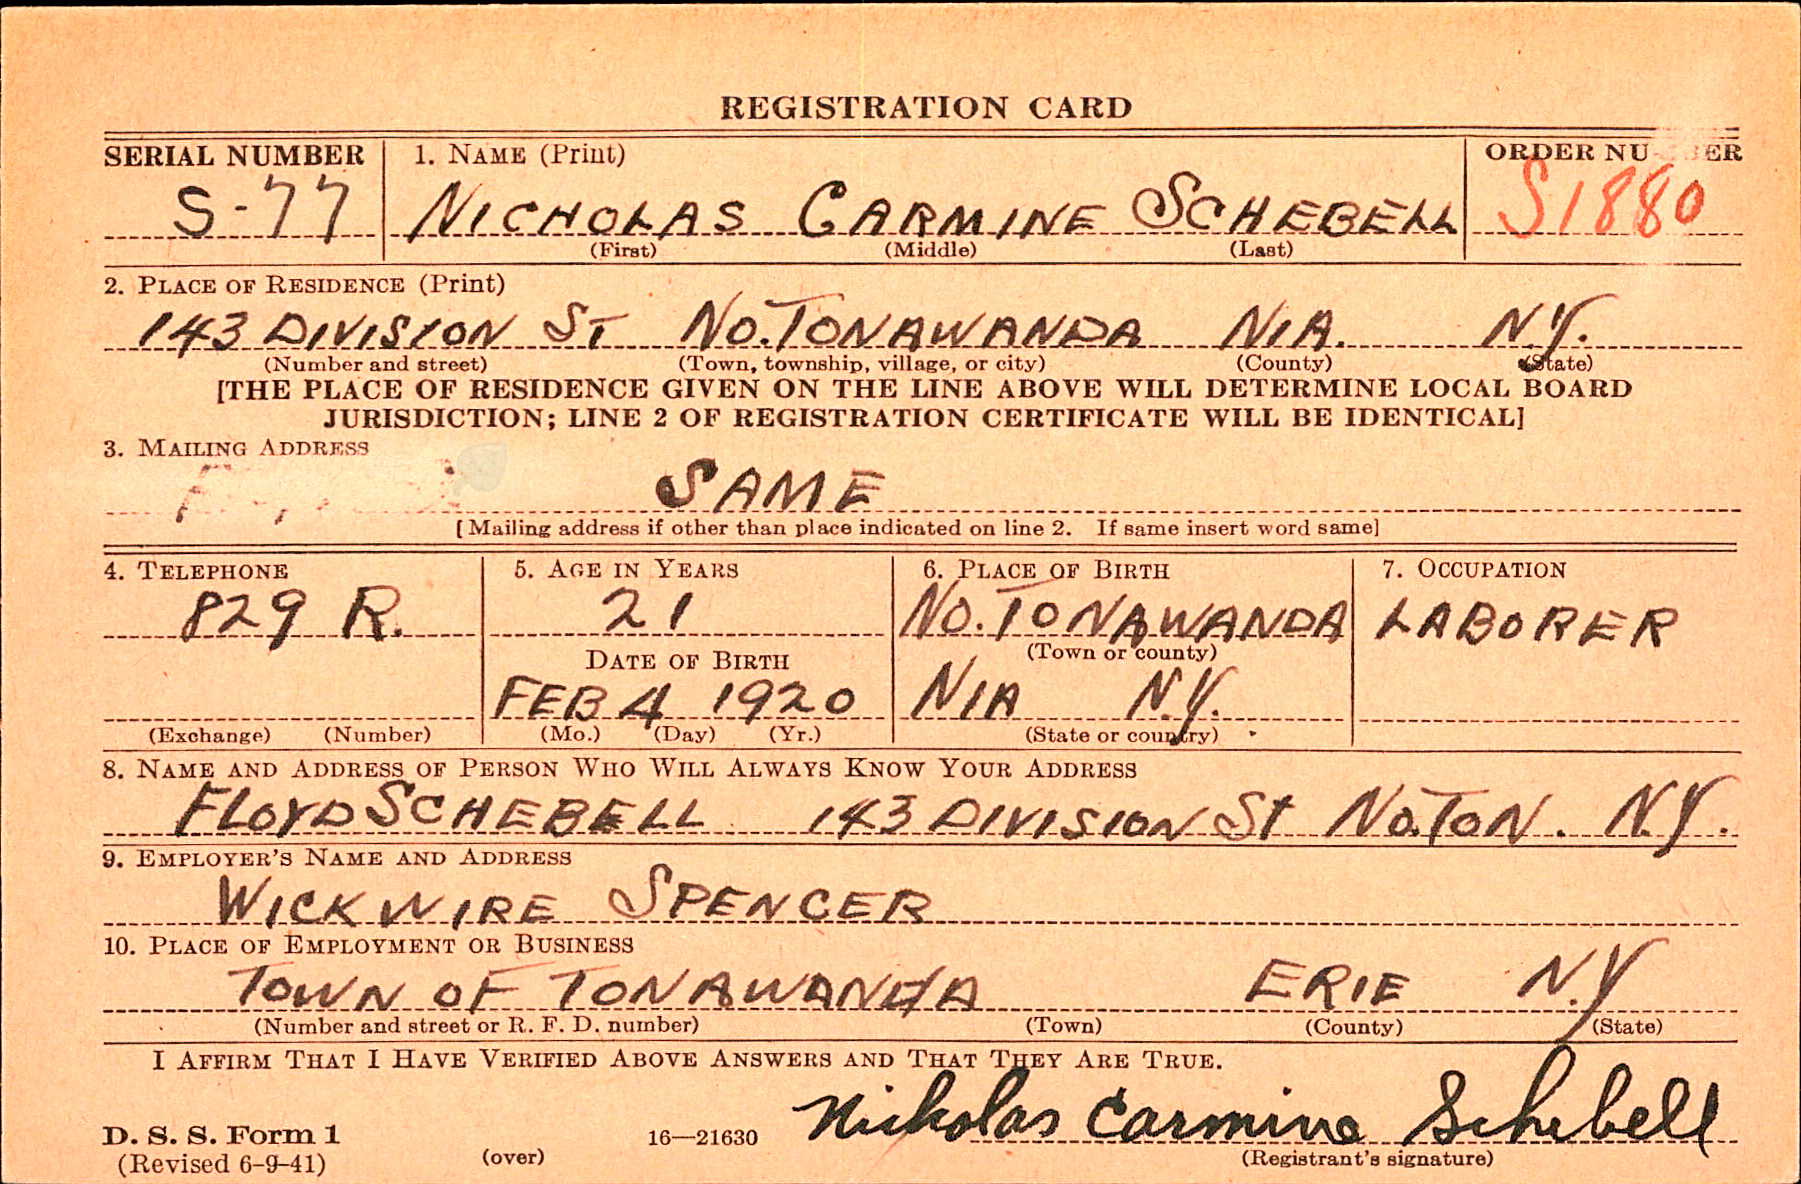 REGISTRATION CARD
SERIAL NUMBER 1. NAME (Print) ORDER NUMBER
S-77 NICHOLAS CARMINE SCHEBELL S1880
(First) (Middle) (Last)
2. PLACE OF RESIDENCE (Print)
143 DIVISION ST NO. TONAWANDA NIA. N.Y.
(Number and street) (Town, township, village, or city) (County) (State)
[THE PLACE OF RESIDENCE GIVEN ON THE LINE ABOVE WILL DETERMINE LOCAL BOARD
JURISDICTION; LINE 2 OF REGISTRATION CERTIFICATE WILL BE IDENTICAL]
3. MAILING ADDRESS
SAME
[Mailing address if other than place indicated on line 2. If same insert word same]
4. TELEPHONE 5. AGE IN YEARS 6. PLACE OF BIRTH 7. OCCUPATION
829 R. 21 NO. TONAWANDA LABORER
DATE OF BIRTH (Town or county)
FEB 4 1920 NIA N.Y.
(Exchange) (Number) (Mo.) (Day) (Yr.) (State or country)
8. NAME AND ADDRESS OF PERSON WHO WILL ALWAYS KNOW YOUR ADDRESS
FLOYD SCHEBELL 143 DIVISION St NO. TON. N.Y.
9. EMPLOYER'S NAME AND ADDRESS
WICKWIRE SPENCER
10. PLACE OF EMPLOYMENT OR BUSINESS
TOWN OF TONAWANDA ERIE N.Y
(Number and street or R. F. D. number) (Town) (County) (State)
I AFFIRM THAT I HAVE VERIFIED ABOVE ANSWERS AND THAT THEY ARE TRUE.
D. S. S. Form 1 16—21630 Nickolas Carmine Schebell
(Revised 6-9-41) (over) (Registrant's signature)